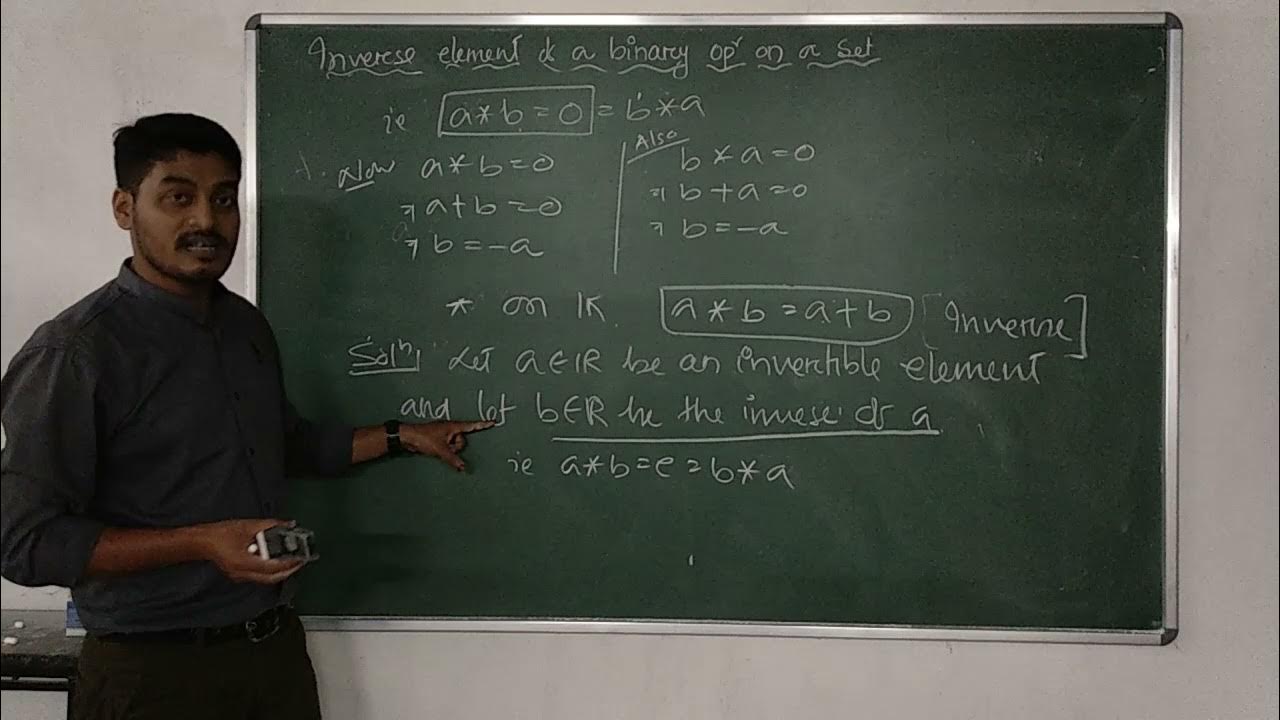 Inverse element of a binary opr on a set
ie a*b=0=b*a
Now a*b=0
⇒a+b=0
⇒b=-a
Also
b*a=0
⇒b+a=0
⇒b=-a
* on IR. a*b=a+b [Inverse]
Soln Let a∈IR be an invertible element
and let b∈IR be the inverse of a.
ie a*b=e=b*a